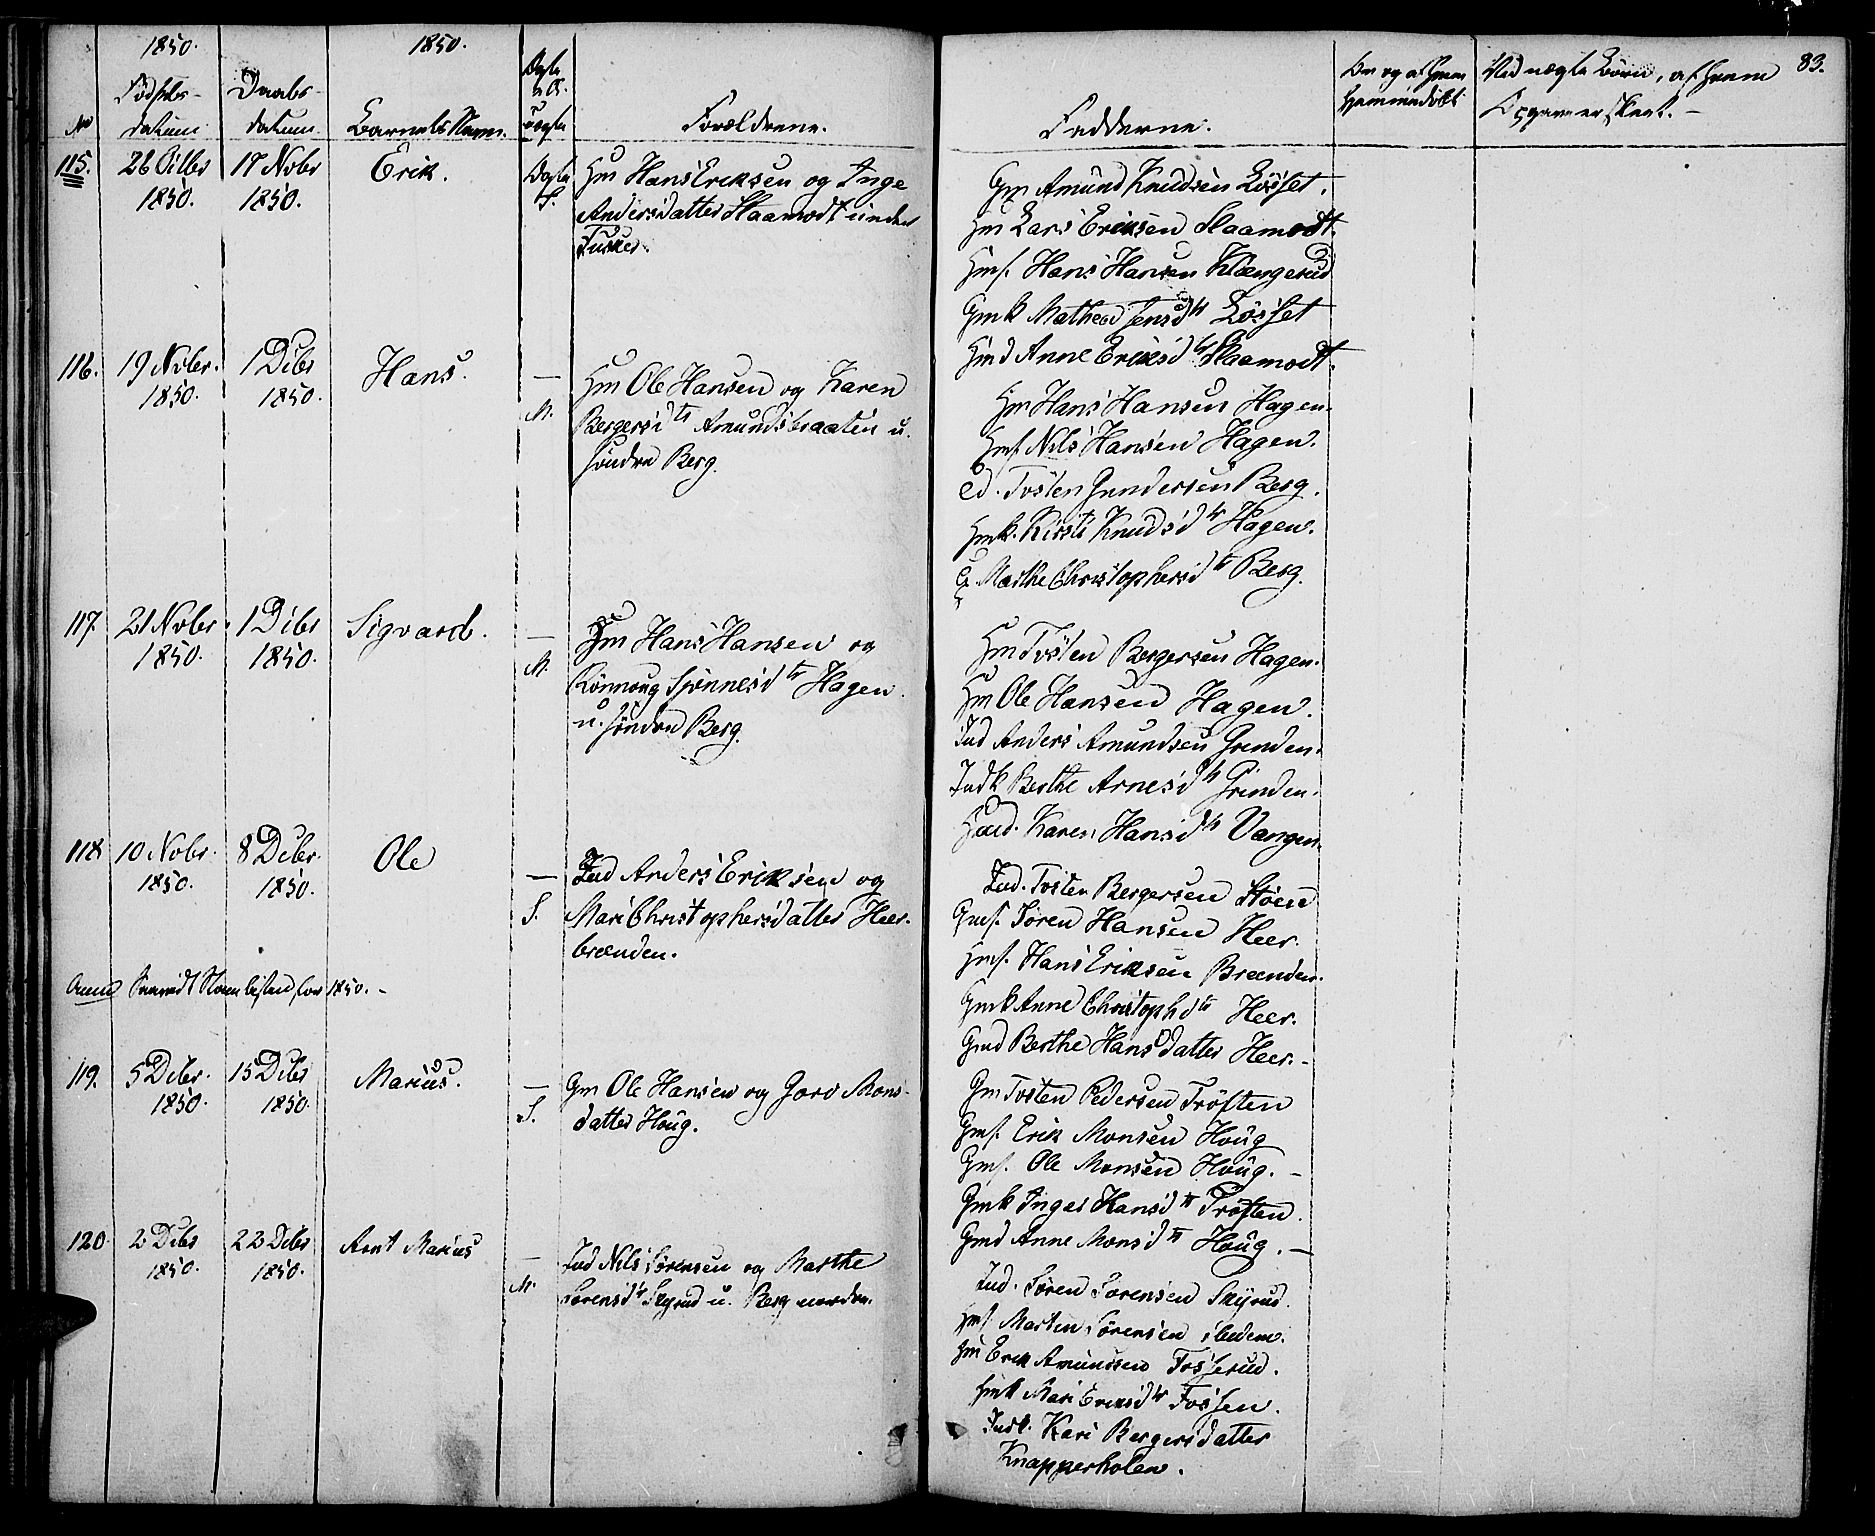 1850. 1850. 83.
No Fødsels-datum Daabs-datum Barnets Navn. Ægte Forældrene. Fadderne.
115. 26 Octbr 1850. 17 Novbr 1850. Erik. Ægte S.
Hm Hans Eriksen og Inge
Andersdatter Staamodt under
Gm Amund Knudsen Løsset.
Hm Lars Eriksen Staamodt.
Hmf. Hans Hansen Klængerud
Gmk Mathea Jensdtr Løsset
Hmd Anne Eriksdtr Staamodt.
116. 19 Novbr. 1850. 1 Decbr 1850. Hans. — M.
Hm Ole Hansen og Karen
Bergersdtr Amundsbraaten u.
søndre Berg.
Hm Hans Hansen Hagen.
Hmf. Nils Hansen Hagen.
Tosten Gundersen Berg.
Hmk. Kirsti Knudsdtr Hagen.
Marthe Christophersdtr Berg.
117. 21 Novbr. 1850. 1 Decbr 1850. Sigvard. — M.
Hm Hans Hansen og
Rönnoug Spönnesdtr Hagen
u. søndre Berg.
Hm Tosten Bergersen Hagen.
Hm Ole Hansen Hagen.
Ind Anders Amundsen Grinden.
Indk Berthe Arnesdtr Grinden.
Karen Hansdtr Vangen.
118 10 Novbr. 1850. 8 Decbr. 1850. Ole — S.
Ind Anders Eriksen og
Mari Christophersdatter Heer-
brænden.
Ind. Tosten Bergersen Støen
Gmf. Søren Hansen Heer.
Hmf. Hans Eriksen Brænden.
Gmk Anne Christophdtr Heer.
Gmd Berthe Hansdatter Heer.-
for 1850. -
119. 5 Decbr. 1850. 15 Decbr 1850. Marius. — S.
Gm Ole Hansen og Goro Mons-
datter Houg.
Gm Tosten Pedersen Tröften
Gmf. Erik Monsen Houg
Gmf. Ole Monsen Houg. -
Gmk Inger Hansdtr Tröften.
Gmd Anne Monsdtr Houg. —
120 2 Decbr 1850. 22 Decbr 1850. Arnt Marius — M.
Ind Nils Sørensen og Marthe
Sørensdtr Skyrud u. Berg nordre.
Ind. Søren Sørensen Skyrud.
Hmf Martin Sørensen ibidem.
Hm Erik Amundsen Fosserud.
Hmk Mari Eriksdtr Fossen.
Indk. Kari Bergersdatter
Knapperholen.